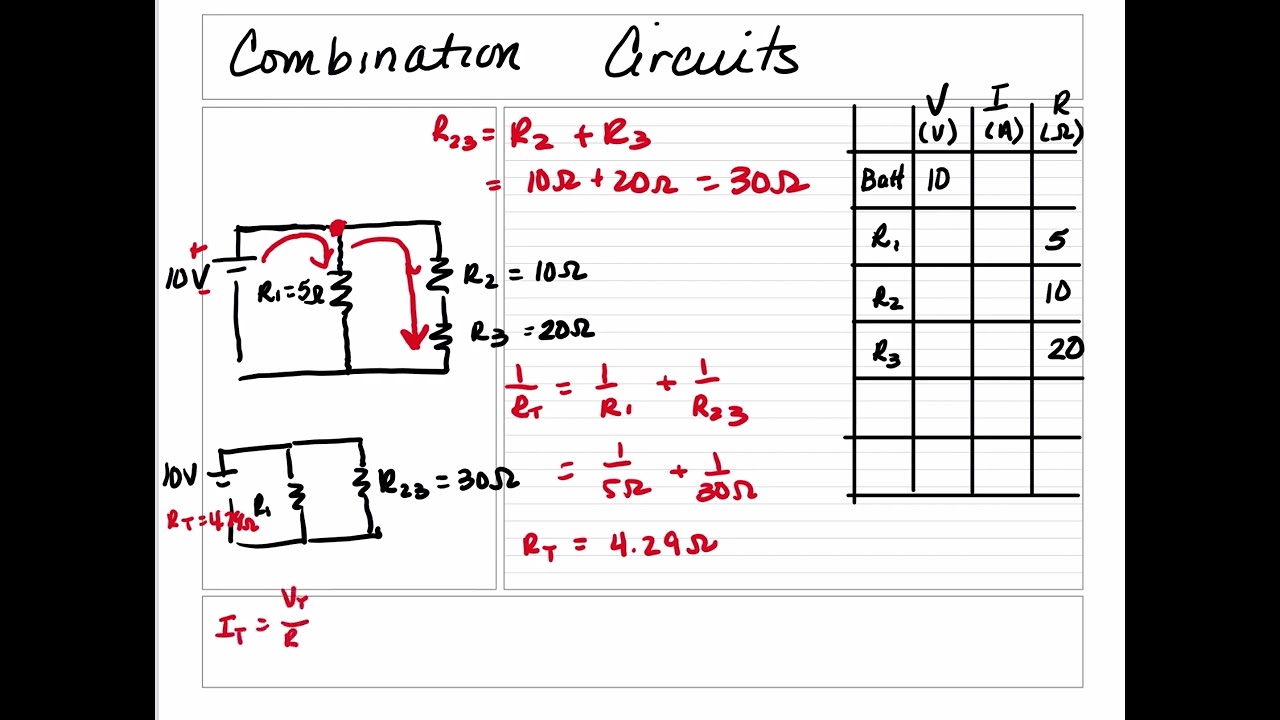 Combination Circuits
R23 = R2 + R3
= 10Ω + 20Ω = 30Ω
+
10V
-
R1 = 5Ω
R2 = 10Ω
R3 = 20Ω
1/RT = 1/R1 + 1/R23
= 1/5Ω + 1/30Ω
RT = 4.29Ω
10V
R1
R23 = 30Ω
RT = 4.29Ω
IT = VT/R
V I R
(V) (A) (Ω)
Batt 10
R1 5
R2 10
R3 20